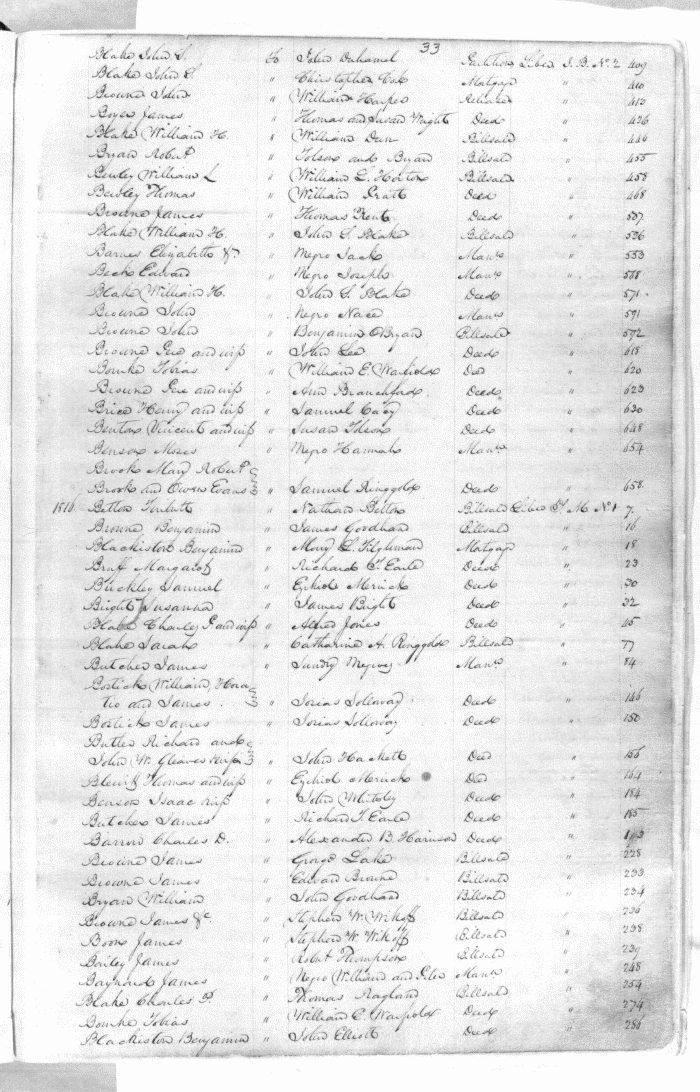 33
Blake John S. To John Duhamel Partition Liber J. B. No. 2 409
Blake John S. " Christopher Cox Mortgage " 410
Browne John " William Harper Release " 413
Boyer James " Thomas and Susan Wright Deed " 426
Blake William H. " William Dun Billsale " 446
Bryan Robert " Tolson and Bryan Billsale " 455
Bewley William L " William L. Horton Billsale " 458
Bewley Thomas " William Pratt Deed " 468
Browne James " Thomas Kent Deed " 507
Blake William H. " John S. Blake Billsale " 536
Barnes Elizabeth &c. " Negro Jack Manu " 553
Beck Edward " Negro Joseph Manu " 568
Blake William H. " John S. Blake Deed " 571
Browne John " Negro Nace Manu " 591
Browne John " Benjamin OBryan Billsale " 592
Browne Geo and wife " John Lee Deed " 618
Bourke Tobias " William E. Deed " 620
Browne Geo and wife " Ann Branchford Deed " 623
Brice Henry and wife " Samuel Deed " 630
Benton Vincent and wife " Susan Deed " 648
Benson Moses " Negro Hannah Manu " 654
Brook Mary Robert
Brook and Owen Evans " Samuel Ringgold Deed " 658
1816 Betton " Nathan Betton Billsale Liber T. M. No 1 7
Browne Benjamin " James Goodhand Billsale " 16
Blackiston Benjamin " Mary L. Tilghman Mortgage " 18
Margaret " Richard T. Earle Deed " 23
Buckley Samuel " Ezekiel Merrick Deed " 30
Bright Susanna " James Bright Deed " 32
Blake Charley P. and wife " Alfred Jones Deed " 45
Blake Sarah " Catharine A. Ringgold Billsale " 77
Butcher James " Sundry Negroes Manu " 84
Bostick William, Hora
tio and James " Deed " 146
Bostick James " Deed " 150
Butler Richard and
John W. Gleaves wife " John Hackett Deed " 156
Blewit Thomas and wife " Ezekiel Merrick Deed " 164
Benson Isaac wife " John Whiteley Deed " 184
Butcher James " Richard T. Earle Deed " 185
Barrow Charles D. " Alexander B. Harrison Deed " 193
Browne James " George Lake Billsale " 228
Browne James " Edward Browne Billsale " 233
Bryan William " John Goodhand Billsale " 234
Browne James &c. " Stephen W. Wikoff Billsale " 236
Boone James " Stephen W. Wikoff Billsale " 238
Bailey James " Robert Thompson Billsale " 239
Baynard James " Negro William and Manu " 248
Blake Charles P. " Thomas Ragland Billsale " 254
Bourke Tobias " William E. Deed " 274
Blackiston Benjamin " John Elliott Deed " 286